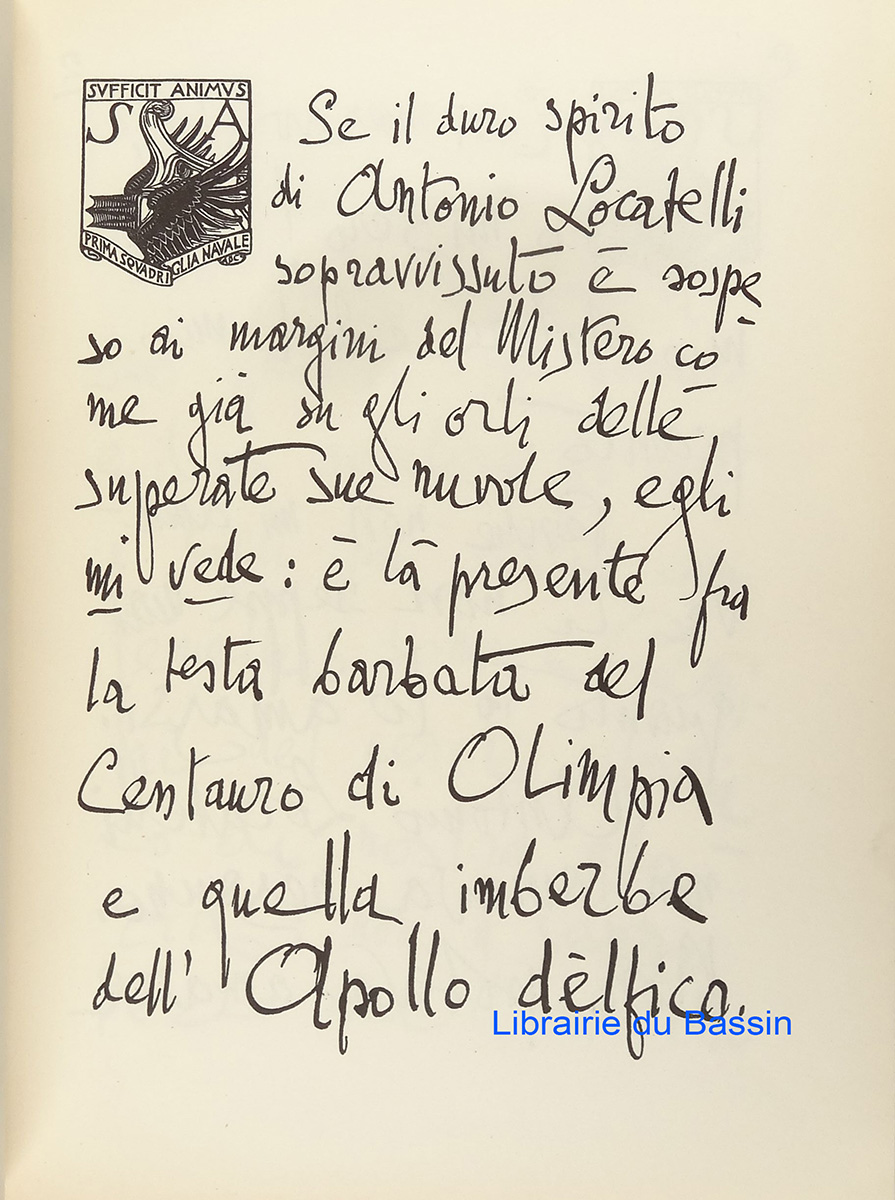 SVFFICIT ANIMVS
S A
PRIMA SQVADRIGLIA NAVALE
Se il duro spirito
di Antonio Locatelli
sopravvissuto è sospe
so ai margini del Mistero co
me già su gli orli delle
superate sue nuvole, egli
mi vede: è là presente fra
la testa barbata del
Centauro di Olimpia
e quella imberbe
dell' Apollo dèlfico.
Librairie du Bassin